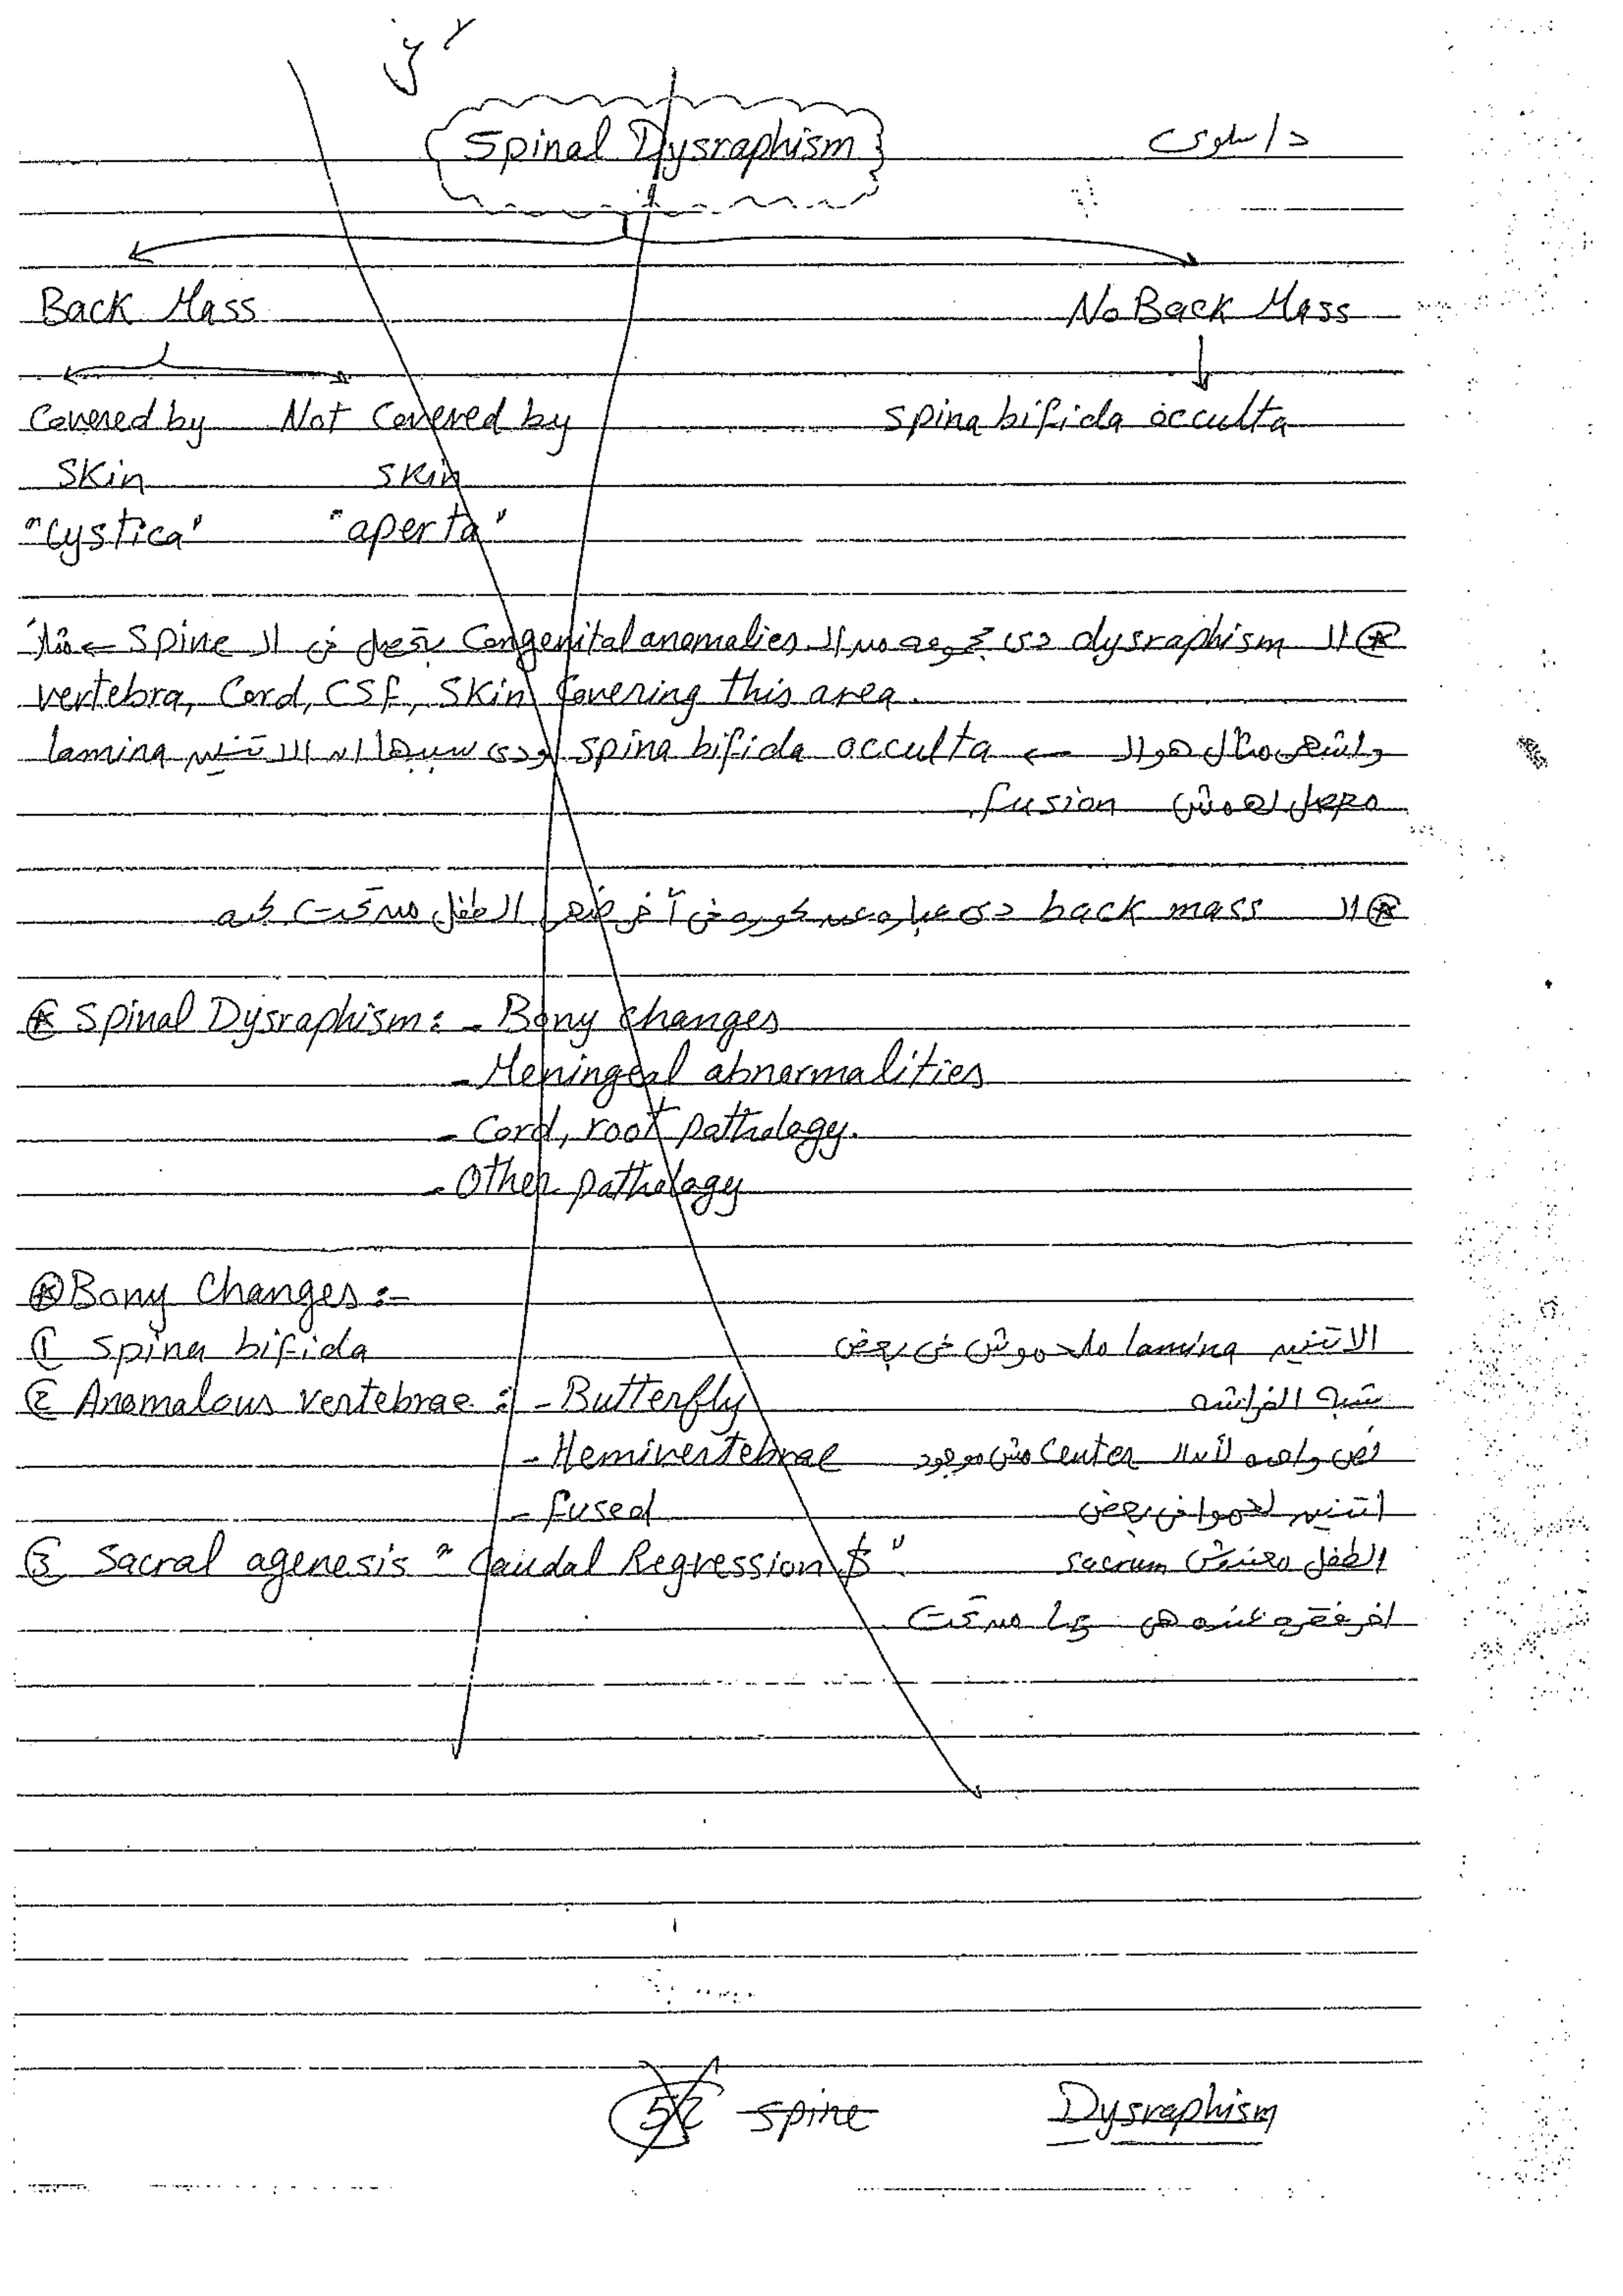 لاغي
Spinal Dysraphism
د/ سلوى
Back Mass No Back Mass
Covered by Not Covered by spina bifida occulta
Skin skin
"Cystica" "aperta"
الـ dysraphism دى مجموعه من الـ Congenital anomalies بتحصل فى الـ Spine ← مثلاً
vertebra, Cord, CSF, Skin Covering this area.
واشهر مثال هو الـ ← spina bifida occulta ودى سببها ان الاتنين lamina
محصل لهمش fusion
الـ back mass دى عباره عن كوره فى آخر ضهر الطفل من تحت كده
Spinal Dysraphism: - Bony changes
- Meningeal abnormalities
- Cord, root pathology.
- Other pathology
Bony Changes :-
① Spina bifida الاتنين lamina ملحموش فى بعض
② Anomalous vertebrae : - Butterfly شبه الفراشه
- Hemivertebrae نص واحده لأن الـ Center مش موجود
- fused اتنين لحموا فى بعض
③ Sacral agenesis "Caudal Regression $" الطفل معندش sacrum
اخر فقره عنده هى من تحت
52 spine Dysraphism